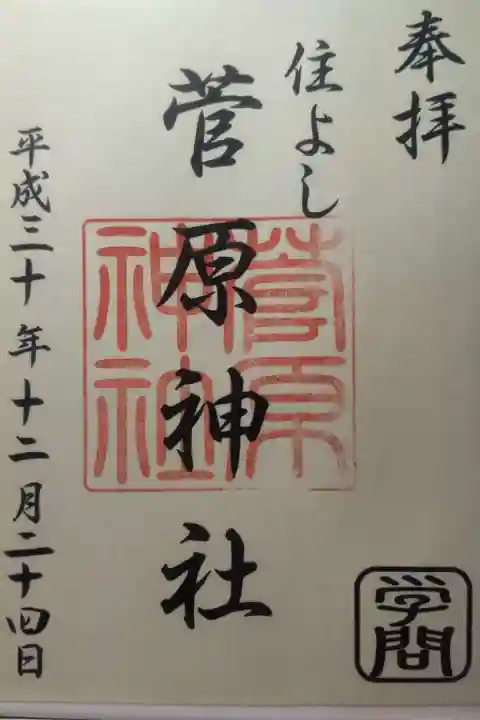 奉拝
住よし
菅原神社
菅原
神社
平成三十年十二月二十四日
学問